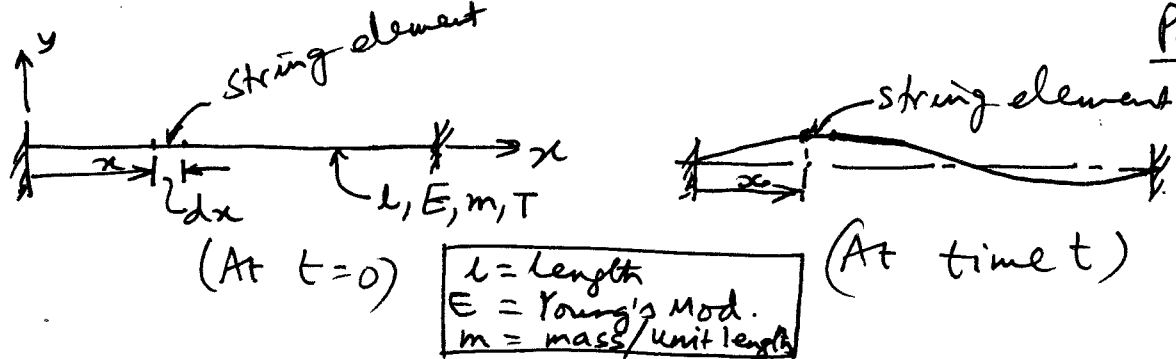 y
string element
x
dx
x
l, E, m, T
(At t=0)
l = length
E = Young's Mod.
m = mass/unit length
P
string element
x
(At time t)